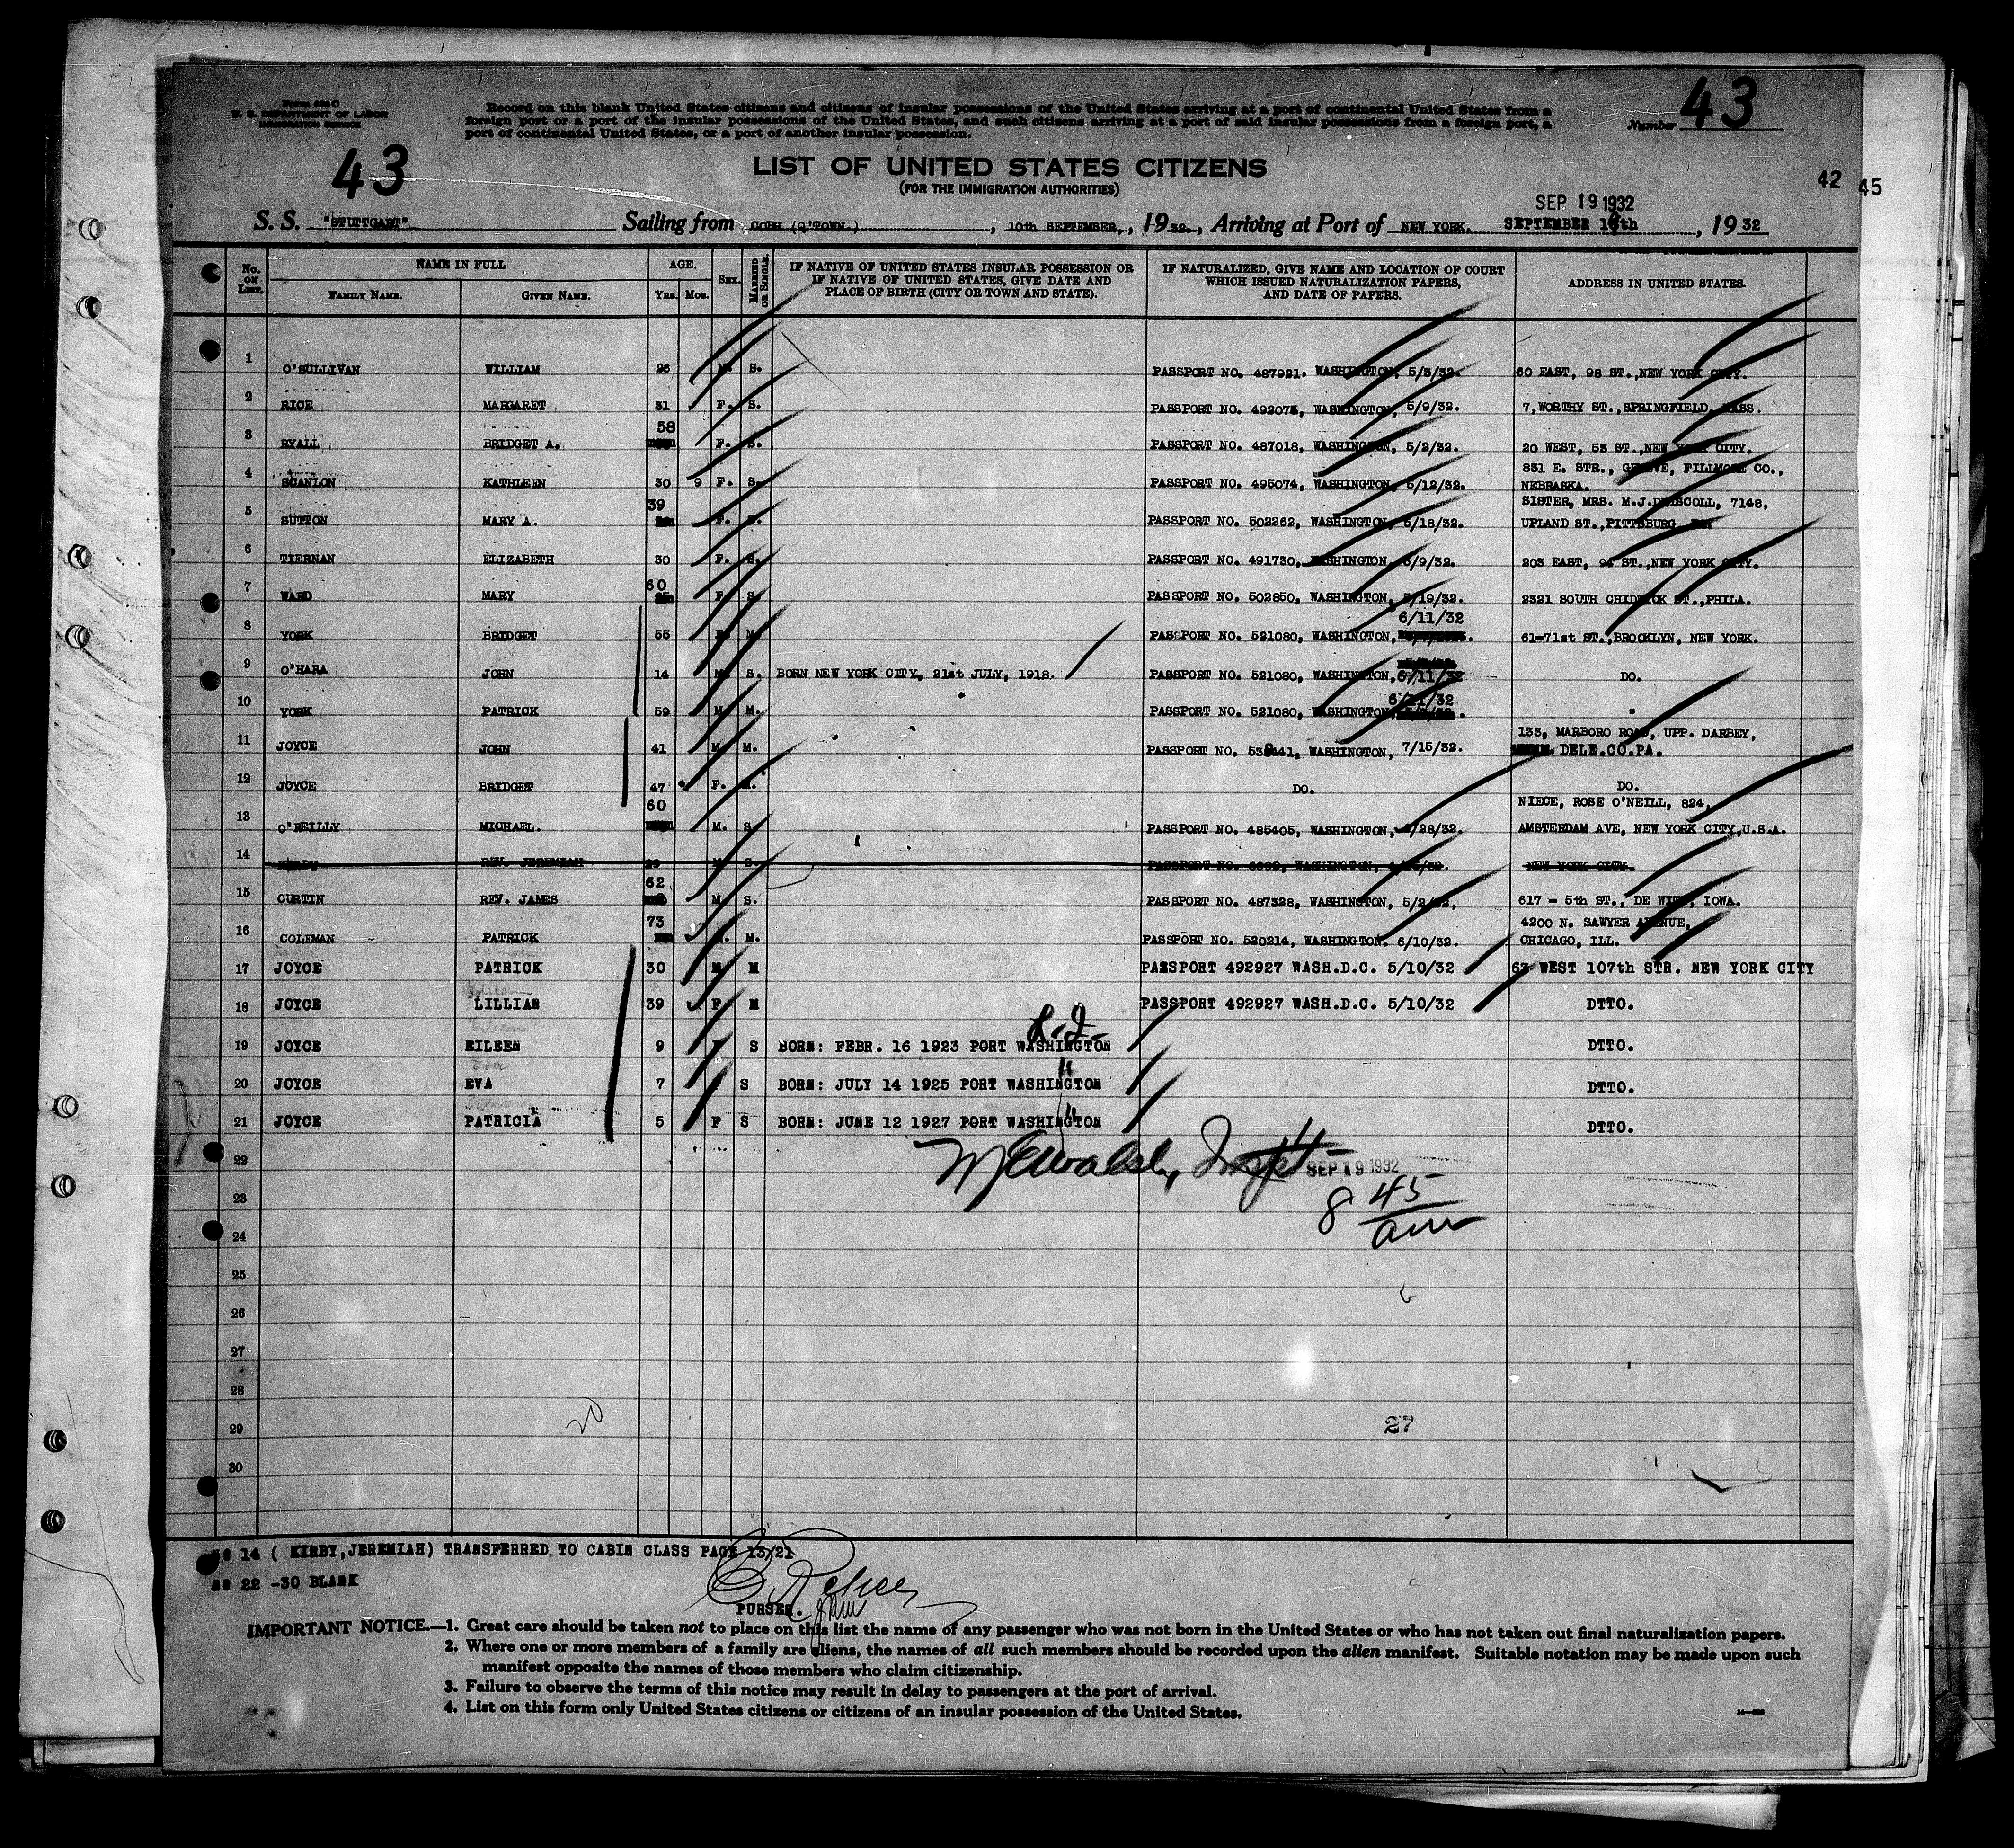 Form 630 C
U. S. DEPARTMENT OF LABOR
IMMIGRATION SERVICE
Record on this blank United States citizens and citizens of insular possessions of the United States arriving at a port of continental United States from a
foreign port or a port of the insular possessions of the United States, and such citizens arriving at a port of said insular possessions from a foreign port, a
port of continental United States, or a port of another insular possession.
Number 43
43
LIST OF UNITED STATES CITIZENS
(FOR THE IMMIGRATION AUTHORITIES)
42 45
SEP 19 1932
S. S. "STUTTGART" Sailing from COBH (Q'TOWN.), 10th SEPTEMBER., 1932., Arriving at Port of NEW YORK. SEPTEMBER 19th, 1932
No. ON LIST. NAME IN FULL FAMILY NAME. GIVEN NAME. AGE. YRS. MOS. SEX. MARRIED OR SINGLE. IF NATIVE OF UNITED STATES INSULAR POSSESSION OR IF NATIVE OF UNITED STATES, GIVE DATE AND PLACE OF BIRTH (CITY OR TOWN AND STATE). IF NATURALIZED, GIVE NAME AND LOCATION OF COURT WHICH ISSUED NATURALIZATION PAPERS, AND DATE OF PAPERS. ADDRESS IN UNITED STATES.
1 O'SULLIVAN WILLIAM 26 M. S. PASSPORT NO. 487921. WASHINGTON, 5/3/32. 60 EAST, 98 ST.,NEW YORK CITY.
2 RICE MARGARET 31 F. S. PASSPORT NO. 492074, WASHINGTON, 5/9/32. 7,WORTHY ST.,SPRINGFIELD, MASS.
3 RYALL BRIDGET A. 58 F. S. PASSPORT NO. 487018, WASHINGTON, 5/2/32. 20 WEST, 53 ST.,NEW YORK CITY.
4 SCANLON KATHLEEN 30 9 F. S. PASSPORT NO. 495074, WASHINGTON, 5/12/32. 831 E. STR., GENEVE, FILLMORE CO., NEBRASKA.
5 SUTTON MARY A. 39 F. S. PASSPORT NO. 502262, WASHINGTON, 5/18/32. SISTER, MRS. M.J.DRISCOLL, 7148, UPLAND ST.,PITTSBURG, PA.
6 TIERNAN ELIZABETH 30 F. S. PASSPORT NO. 491730, WASHINGTON, 5/9/32. 203 EAST, 94 ST.,NEW YORK CITY.
7 WARD MARY 60 F. S. PASSPORT NO. 502850, WASHINGTON, 5/19/32. 2321 SOUTH CHIDWICK ST.,PHILA.
8 YORK BRIDGET 55 F. M. PASSPORT NO. 521080, WASHINGTON, 6/11/32 61-71st ST., BROOKLYN, NEW YORK.
9 O'HARA JOHN 14 M. S. BORN NEW YORK CITY, 21st JULY, 1918. PASSPORT NO. 521080, WASHINGTON, 6/11/32 DO.
10 YORK PATRICK 59 M. M. PASSPORT NO. 521080, WASHINGTON, 6/11/32 "
11 JOYCE JOHN 41 M. M. PASSPORT NO. 539441, WASHINGTON, 7/15/32. 133, MARBORO ROAD, UPP. DARBEY, DELE.CO.PA.
12 JOYCE BRIDGET 47 F. M. DO. DO.
13 O'REILLY MICHAEL. 60 M. S. PASSPORT NO. 485405, WASHINGTON, 4/28/32. NIECE, ROSE O'NEILL, 824, AMSTERDAM AVE, NEW YORK CITY,U.S.A.
14 KIRBY REV. JEREMIAH 29 M. S. PASSPORT NO. WASHINGTON, NEW YORK CITY.
15 CURTIN REV. JAMES 62 M. S. PASSPORT NO. 487328, WASHINGTON, 5/2/32, 617 - 5th ST., DE WITT, IOWA.
16 COLEMAN PATRICK 73 M. M. PASSPORT NO. 520214, WASHINGTON. 6/10/32. 4200 N. SAWYER AVENUE, CHICAGO, ILL.
17 JOYCE PATRICK 30 M M PASSPORT 492927 WASH.D.C. 5/10/32 63 WEST 107th STR. NEW YORK CITY
18 JOYCE LILLIAN 39 F M PASSPORT 492927 WASH.D.C. 5/10/32 DTTO.
L. I.
19 JOYCE EILEEN 9 F S BORN: FEBR. 16 1923 PORT WASHINGTON DTTO.
20 JOYCE EVA 7 F S BORN: JULY 14 1925 PORT WASHINGTON " DTTO.
21 JOYCE PATRICIA 5 F S BORN: JUNE 12 1927 PORT WASHINGTON " DTTO.
22 McWalsh, Inspt SEP 19 1932
23 8 45 am
24
25
26
27
28
29 20 27
30
No 14 ( KIRBY,JEREMIAH) TRANSFERRED TO CABIN CLASS PAGE 13/21
No 22 -30 BLANK
PURSER.
IMPORTANT NOTICE.—1. Great care should be taken not to place on this list the name of any passenger who was not born in the United States or who has not taken out final naturalization papers.
2. Where one or more members of a family are aliens, the names of all such members should be recorded upon the alien manifest. Suitable notation may be made upon such
manifest opposite the names of those members who claim citizenship.
3. Failure to observe the terms of this notice may result in delay to passengers at the port of arrival.
4. List on this form only United States citizens or citizens of an insular possession of the United States.